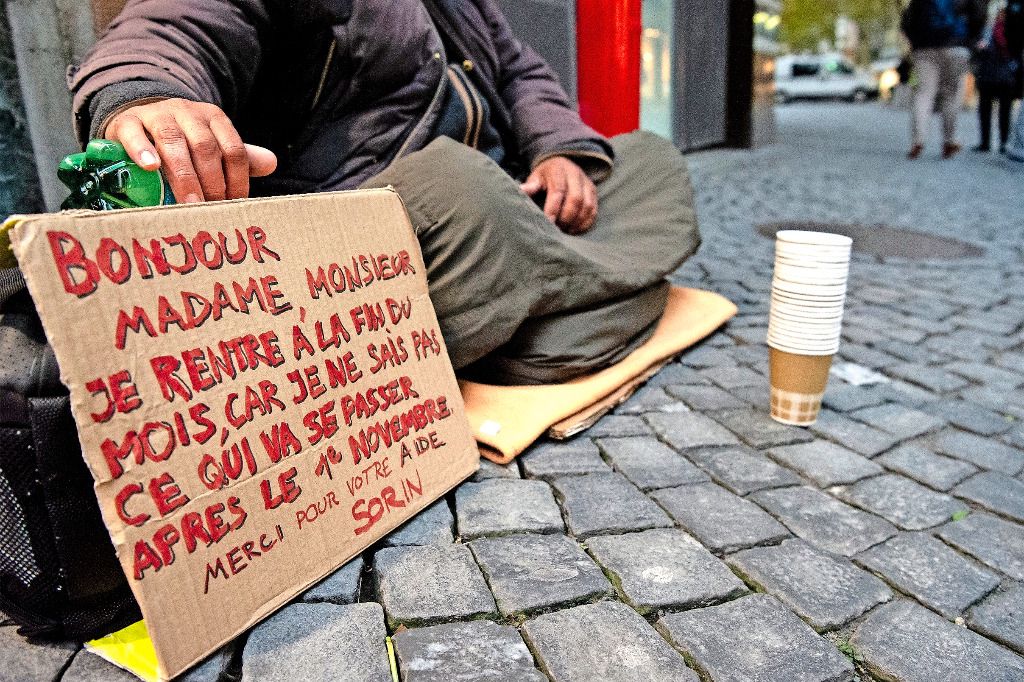 BONJOUR
MADAME, MONSIEUR
JE RENTRE À LA FIN DU
MOIS, CAR JE NE SAIS PAS
CE QUI VA SE PASSER
APRES LE 1e NOVEMBRE.
MERCI POUR VOTRE AIDE
SORIN